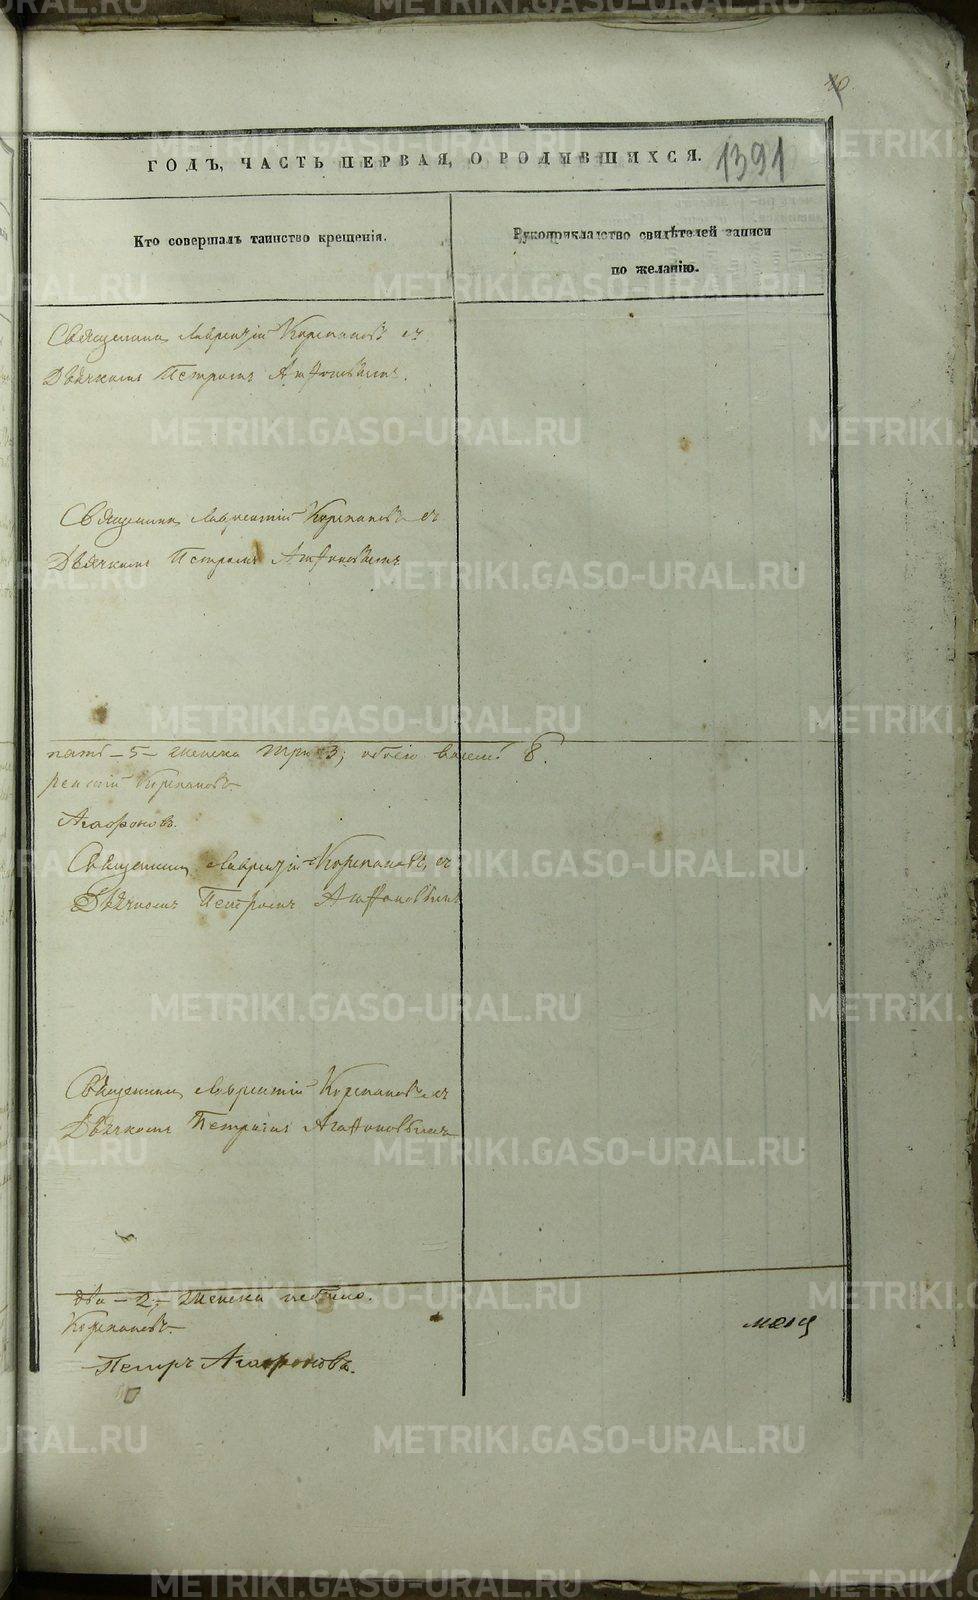 1391
ГОДЪ, ЧАСТЬ ПЕРВАЯ, О РОДИВШИХСЯ.
Кто совершалъ таинство крещенія.
Рукоприкладство свидѣтелей записи
по желанію.
Священникъ Лаврентій Корепановъ съ
Дьячкомъ Петромъ Агафоновымъ.
Священникъ Лаврентій Корепановъ съ
Дьячкомъ Петромъ Агафоновымъ
пять – 5 – женска три 3; обоего 8.
рентій Корепановъ
Агафоновъ.
Священникъ Лаврентій Корепановъ съ
Дьячкомъ Петромъ Агафоновымъ
Священникъ Лаврентій Корепановъ съ
Дьячкомъ Петромъ Агафоновымъ
два – 2, – женска небыло.
Корепановъ.
Петръ Агафоновъ.
METRIKI.GASO-URAL.RU